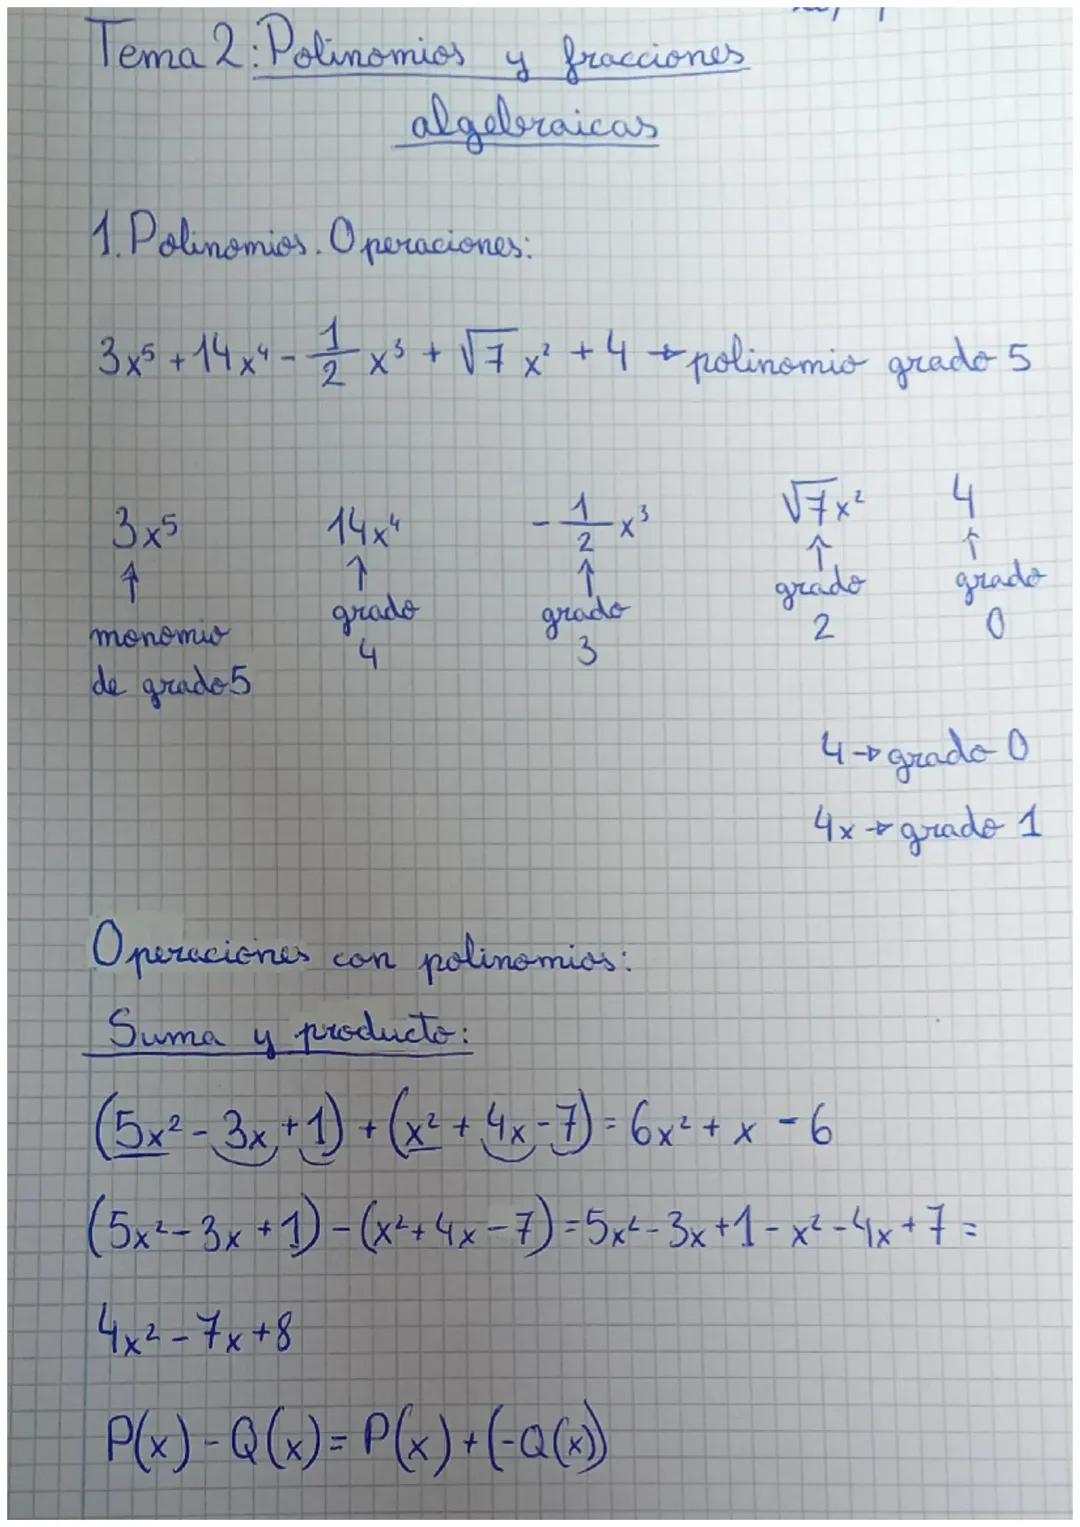 Tema 2: Polinomios y fracciones
algebraicas
1. Polinomios. Operaciones:
3x⁵ + 14x⁴ - 1/2 x³ + √7 x² + 4 → polinomio grado 5
3x⁵ 14x⁴ - 1/2 x³ √7x² 4
↑ ↑ ↑ ↑ ↑
monomio grado grado grado grado
de grado 5 4 3 2 0
4 → grado 0
4x → grado 1
Operaciones con polinomios:
Suma y producto:
(5x² - 3x + 1) + (x² + 4x - 7) = 6x² + x - 6
(5x² - 3x + 1) - (x² + 4x - 7) = 5x² - 3x + 1 - x² - 4x + 7 =
4x² - 7x + 8
P(x) - Q(x) = P(x) + (-Q(x))